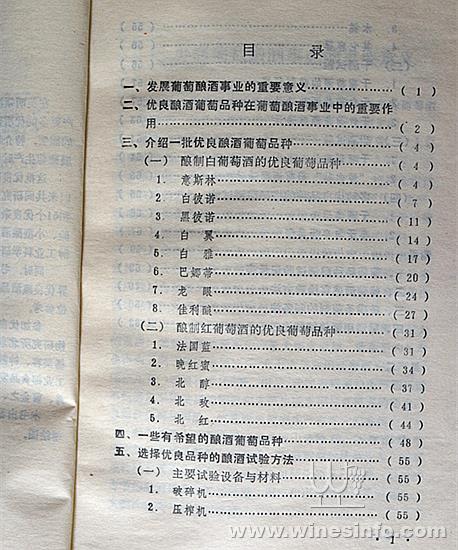 目 录
一、发展葡萄酿酒事业的重要意义 ( 1 )
二、优良酿酒葡萄品种在葡萄酿酒事业中的重要作
用 ( 2 )
三、介绍一批优良酿酒葡萄品种 ( 4 )
(一) 酿制白葡萄酒的优良葡萄品种 ( 4 )
1. 意斯林 ( 4 )
2. 白彼诺 ( 7 )
3. 黑彼诺 ( 11 )
4. 白 翼 ( 14 )
5. 白 雅 ( 17 )
6. 巴娜蒂 ( 20 )
7. 龙 眼 ( 24 )
8. 佳利酿 ( 27 )
(二) 酿制红葡萄酒的优良葡萄品种 ( 31 )
1. 法国蓝 ( 31 )
2. 晚红蜜 ( 34 )
3. 北 醇 ( 37 )
4. 北 玫 ( 41 )
5. 北 红 ( 44 )
四、一些有希望的酿酒葡萄品种 ( 48 )
五、选择优良品种的酿酒试验方法 ( 55 )
(一) 主要试验设备与材料 ( 55 )
1. 破碎机 ( 55 )
2. 压榨机 ( 55 )
· 1 ·
www.winesinfo.com